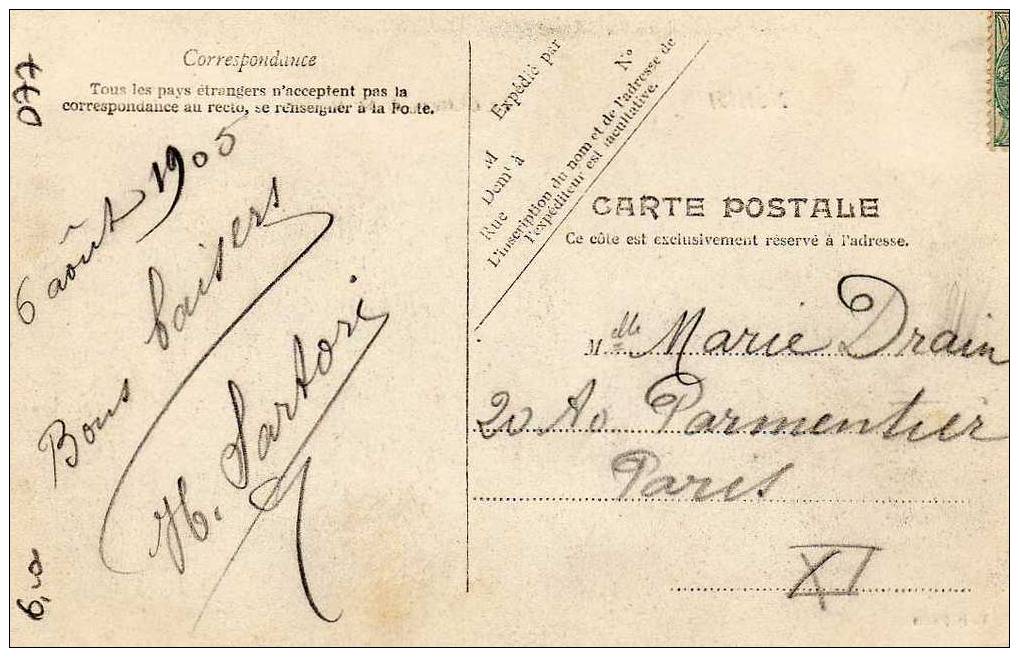 Correspondance
Tous les pays étrangers n'acceptent pas la
correspondance au recto, se renseigner à la Poste.
077
6 août 1905
Bons baisers
H. Sartori
Expédié par
M
Demt à
Rue
N°
L'inscription du nom et de l'adresse de
l'expéditeur est facultative.
CARTE POSTALE
Ce côté est exclusivement réservé à l'adresse.
Melle Marie Drain
20 Av Parmentier
Paris
XI